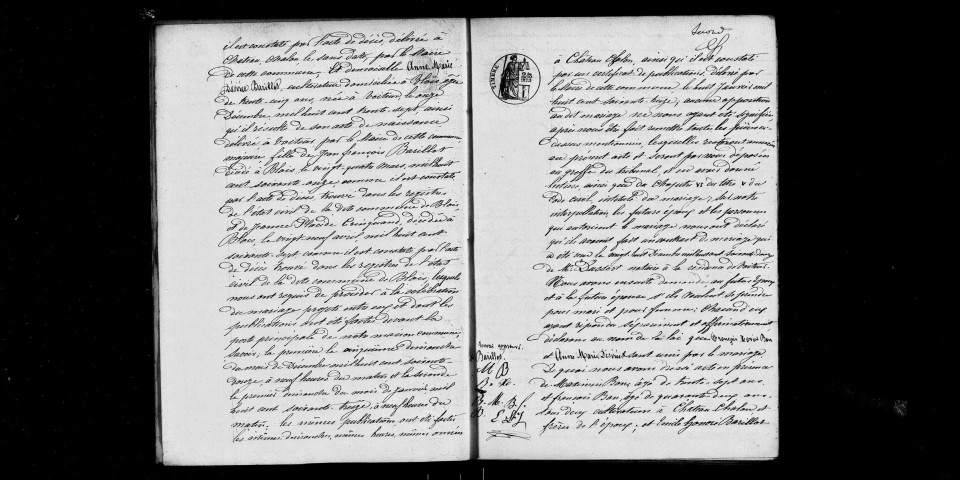 il est constaté par l'acte de décès, délivré à
Chateau Chalon le sans date, par le Maire
de cette commune, Et demoiselle Anne Marie
Barillot, cultivatrice domiciliée à Blois âgée
de trente cinq ans, née à Voiteur le onze
Décembre mil huit cent trente-sept ainsi
qu'il résulte de son acte de naissance
délivré à Voiteur par le Maire de cette commune
majeure fille de Jean François Barillot
décédé à Blois, le vingt quatre mars, mil huit
cent soixante onze comme il est constaté
par l'acte de décès, trouvé dans les registres
de l'état civil de la dite commune de Blois,
et de Jeanne Placide décédée à
Blois, le vingt neuf avril, mil huit cent
soixante sept comme il est constaté par l'acte
de décès trouvé dans les registres de l'état
civil de la dite commune de Blois, lesquels
nous ont requis de procéder à la célébration
du mariage projeté entre eux et dont les
publications ont été faites devant la
porte principale de notre maison commune
savoir, la première le cinquième dimanche
du mois de Décembre mil huit cent soixante-
douze, à neuf heures du matin et la seconde
le premier dimanche du mois de janvier mil
huit cent soixante treize, à neuf heures du
matin; les mêmes publications ont été faites
les mêmes dimanches, mêmes heures, mêmes années
à Château Chalon, ainsi qu'il est constaté
par un certificat de publications délivré par
le Maire de cette commune le huit janvier mil
huit cent soixante treize, aucune opposition
au dit mariage ne nous ayant été signifiée,
après nous être fait remettre toutes les pièces ci-
dessus mentionnées, lesquelles resteront annexées
au présent acte et seront par nous déposées
au greffe du tribunal, et en avoir donné
lecture ainsi que du chapitre VI du titre V du
Code civil, intitulé du mariage; sur notre
interpellation, les futurs époux et les personnes
qui autorisent le mariage nous ont déclaré
qu'ils avaient fait un contrat de mariage qui
a été reçu le vingt huit Décembre mil huit cent soixante douze
de Me notaire à la résidence de Voiteur
Nous avons ensuite demandé au futur époux
et à la future épouse s'ils veulent se prendre
pour mari et pour femme; Chacun d'eux
ayant répondu séparément et affirmativement
déclarons au nom de la loi que François Bau
et Anne Marie Barillot sont unis par le mariage
De quoi nous avons dressé acte en présence
de Maximin Bau, âgé de trente-sept ans
et françois Bau, âgé de quarante deux ans
tous deux cultivateurs à Château Chalon et
frères de l'époux; et Emile Honoré Barillot
TIMBRE
Barillot
M B
B. M. B.
E. H. J